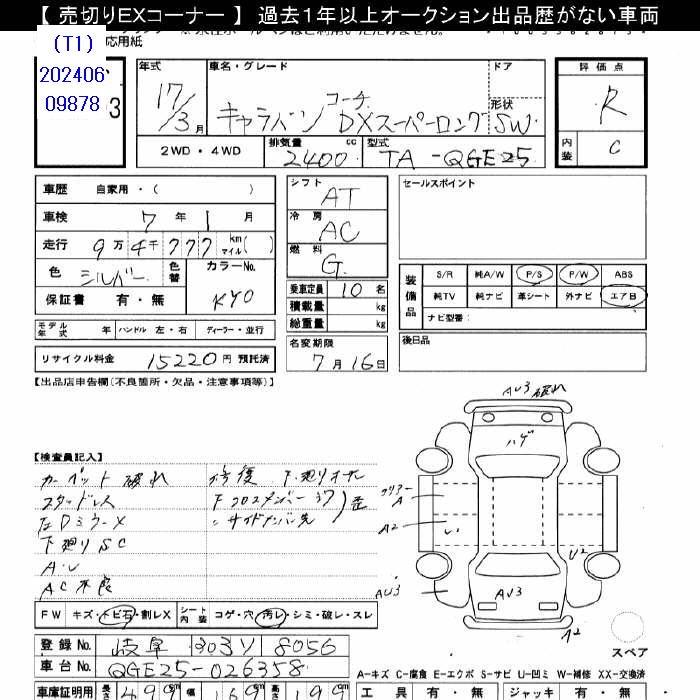 【 売切りEXコーナー 】 過去１年以上オークション出品歴がない車両
応用紙
(T1)
202406
09878
3
年式 車名・グレード ドア 評価点
17/3月 キャラバン コーチ DXスーパーロング 形状 SW R
2WD・4WD 排気量 2400 cc 型式 TA-QGE25 内装 C
車歴 自家用・( )
車検 7年 1月
走行 9万4千777 km マイル( )
色 シルバー 色替 カラーNo. KY0
保証書 有・無
モデル年式 年 ハンドル 左・右 ディーラー・並行
リサイクル料金 15220円 預託済
シフト AT
冷房 AC
燃料 G
乗車定員 10名
積載量 kg
総重量 kg
名変期限
7月16日
セールスポイント
装備品 S/R 純A/W P/S P/W ABS
純TV 純ナビ 革シート 外ナビ エアB
ナビ型番：
後日品
【出品店申告欄(不良箇所・欠品・注意事項等)】
【検査員記入】
カーペット破れ
スタッドレス
左DミラーX
下廻りSC
A・U
AC不良
修復 下廻り
下クロスメンバー
サイドメンバー先 歪
AU3 破れ
ハゲ
クリアー
A
A2
い
U2
AU3
AU3
A2
スペア
FW キズ・トビ石・割レX シート内装 コゲ・穴・汚レ・シミ・破レ・スレ
登録No. 岐阜 303 ソ 8056
車台No. QGE25-026358
A-キズ C-腐食 E-エクボ S-サビ U-凹ミ W-補修 XX-交換済
車庫証明用 長さ 499cm 幅 169cm 高さ
工具 有・無 ジャッキ 有・無